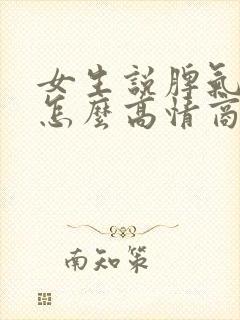 女生說脾氣
怎麼高情商
南知策